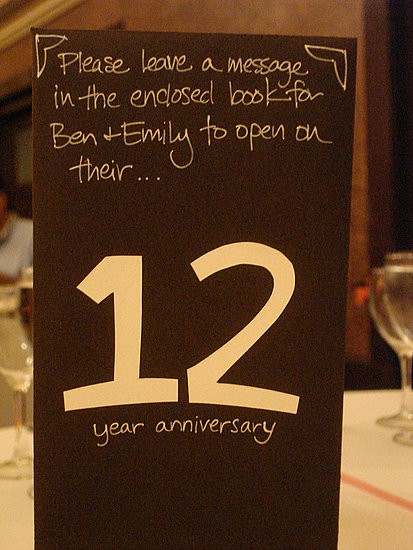 Please leave a message
in the enclosed book for
Ben + Emily to open on
their...
12
year anniversary